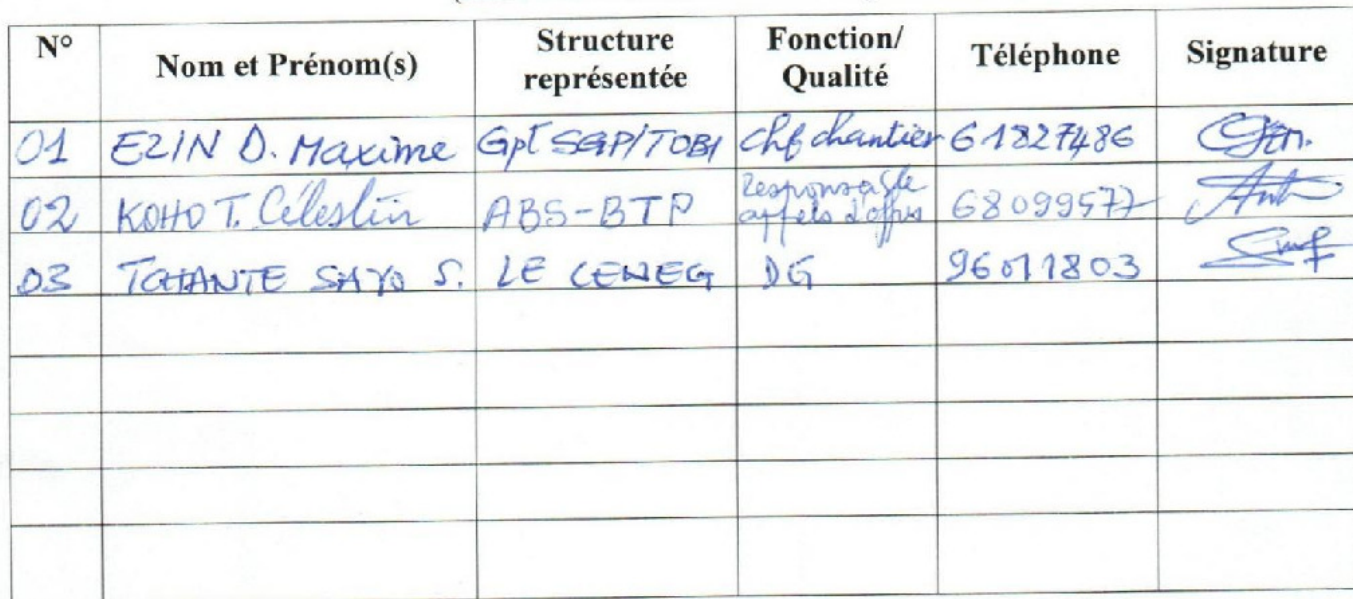 N° Nom et Prénom(s) Structure représentée Fonction/ Qualité Téléphone Signature
01 EZIN D. Maxime Gpt SGP/TOBI Chf chantier 61827486
02 KOHO T. Célestin ABS-BTP Responsable appels d'offres 68099577
03 TCHANTE SAYO S. LE CENEG DG 96011803